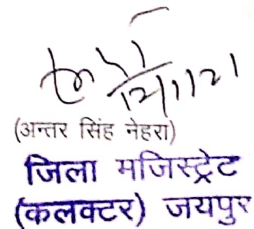 12/11/21
(अन्तर सिंह नेहरा)
जिला मजिस्ट्रेट
(कलक्टर) जयपुर